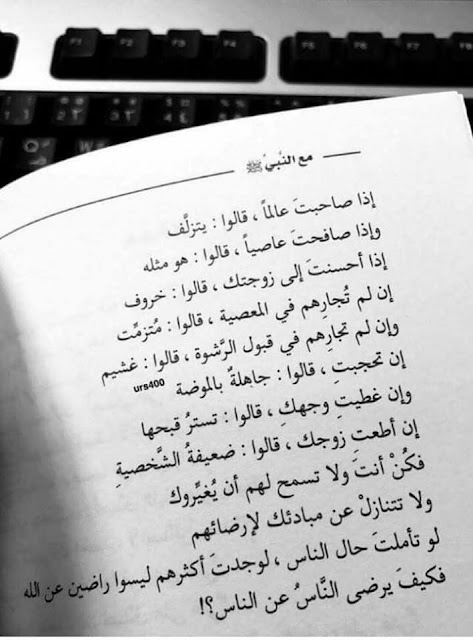 F1 F2 F3 F4 F5 F6 F7 F8
مع النبي ﷺ
إذا صاحبتَ عالماً ، قالوا : يتزلَّف
وإذا صافحتَ عاصياً ، قالوا : هو مثله
إذا أحسنتَ إلى زوجتك ، قالوا : خروف
إن لم تُجارِهم في المعصية ، قالوا : مُتزمِّت
وإن لم تجارِهم في قبول الرَّشوة ، قالوا : غشيم
إن تحجبتِ ، قالوا : جاهلةٌ بالموضة urs400
وإن غطيتِ وجهكِ ، قالوا : تسترُ قبحها
إن أطعتِ زوجك ، قالوا : ضعيفةُ الشَّخصيةِ
فكُنْ أنتَ ولا تسمح لهم أن يُغيِّروك
ولا تتنازلْ عن مبادئك لإرضائهم
لو تأملتَ حال الناس ، لوجدتَ أكثرهم ليسوا راضين عن الله
فكيفَ يرضى النَّاسُ عن الناس؟!